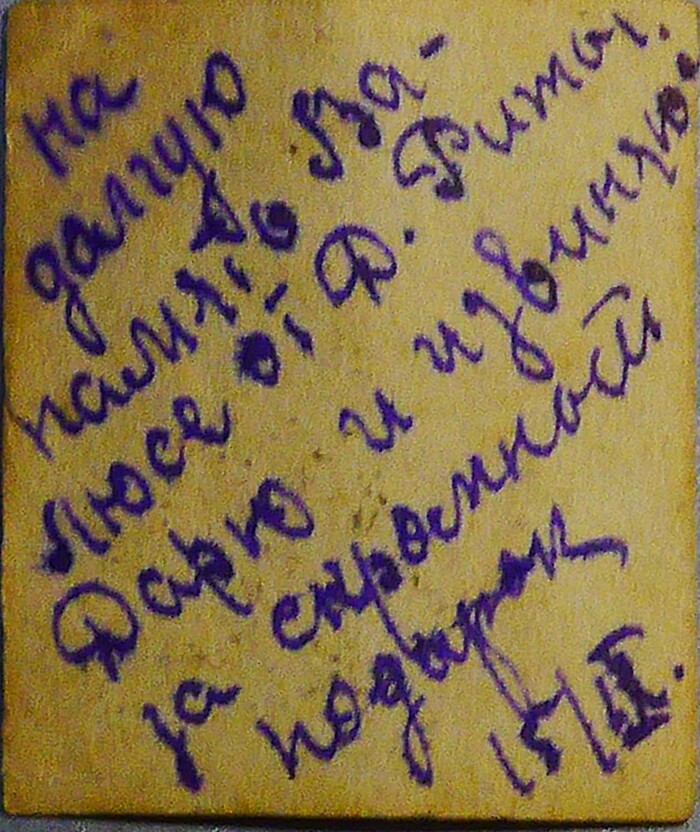 на
далгую
память Ва-
люсе от Д. Риты.
Дарю и извиняюс
за скромный
подарок
15/IX.